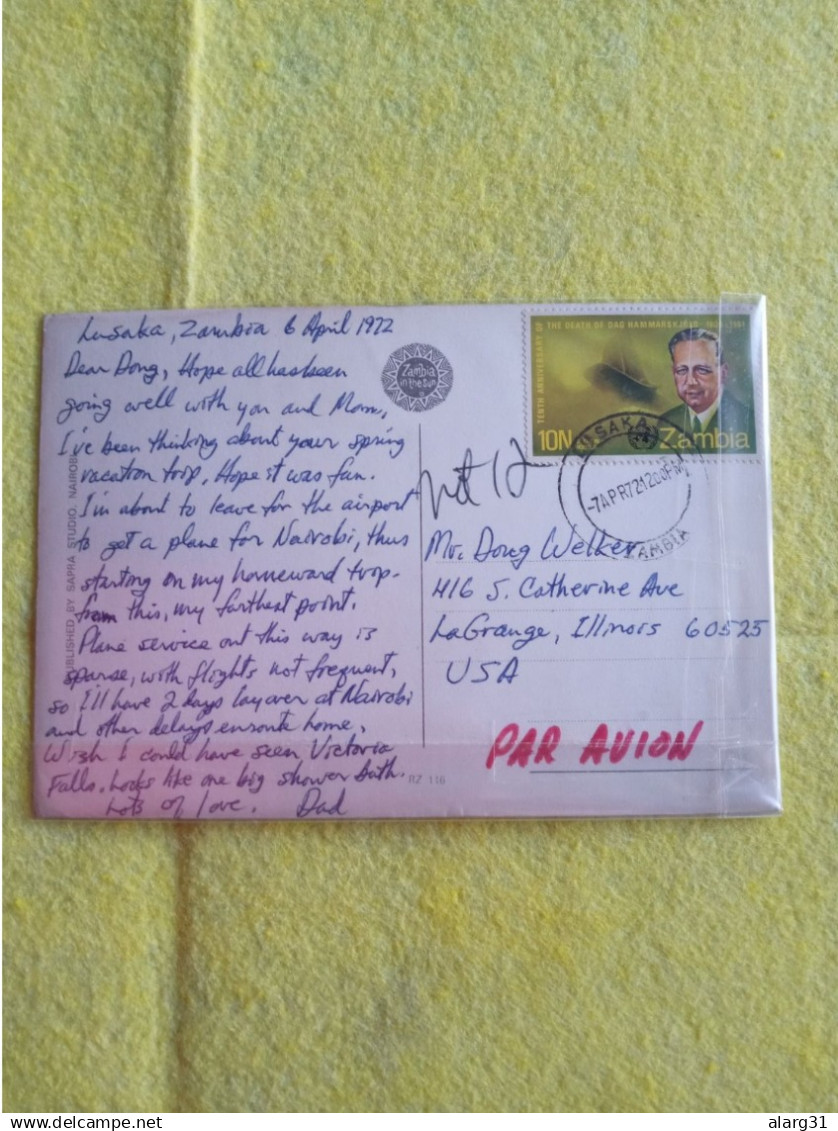 Lusaka, Zambia 6 April 1972
Dear Doug, Hope all has been
going well with you and Mom,
I've been thinking about your spring
vacation trip. Hope it was fun.
I'm about to leave for the airport
to get a plane for Nairobi, thus
starting on my homeward trip
from this, my farthest point.
Plane service out this way is
sparse, with flights not frequent,
so I'll have 2 days layover at Nairobi
and other delays enroute home,
Wish I could have seen Victoria
Falls. Looks like one big shower bath.
Lots of love. Dad
PUBLISHED BY SAPRA STUDIO, NAIROBI
Zambia
in the sun
RZ 116
TENTH ANNIVERSARY OF
THE DEATH OF DAG HAMMARSKJOLD
10N
Zambia
LUSAKA
-7APR72 1200PM
ZAMBIA
Mr. Doug Welker
416 S. Catherine Ave
LaGrange, Illinois 60525
USA
PAR AVION
alarg31